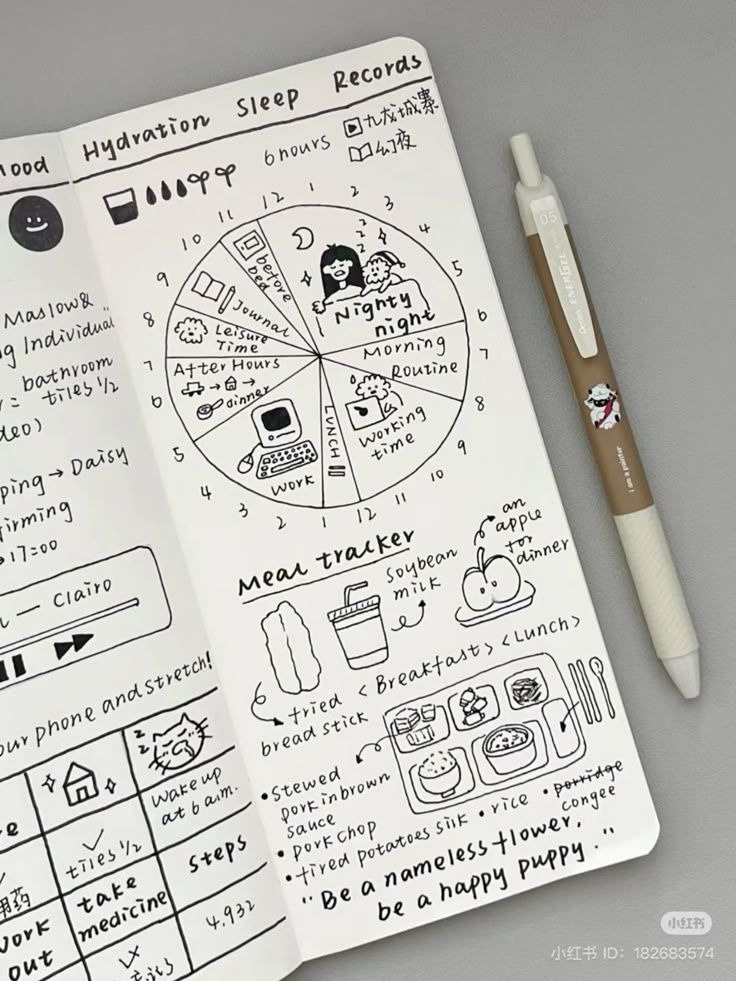 Mood
Maslow&
Individual
bathroom
tiles 1/2
→ Daisy
17:00
— Clairo
your phone and stretch!
wake up
at 6 a.m.
✓
tiles 1/2
steps
用药
take
medicine
4.932
work
out
Hydration Sleep Records
6 hours
九龙城寨
幻夜
12 1 2 3 4 5 6 7 8 9 10 11 12 1 2 3 4 5 6 7 8 9 10 11
z z z
Nighty
night
Morning
Routine
Working
time
LUNCH
work
After Hours
→ →
dinner
Leisure
Time
Journal
before
bed
Meal tracker
Soybean
milk
an
apple
for
dinner
fried
bread stick
<Breakfast> <Lunch>
•Stewed
pork in brown
sauce
• pork chop
• fired potatoes silk • rice • porridge
congee
"Be a nameless flower,
be a happy puppy."
05
Pentel ENERGEL
i am a painter
小红书
小红书 ID: 182683574